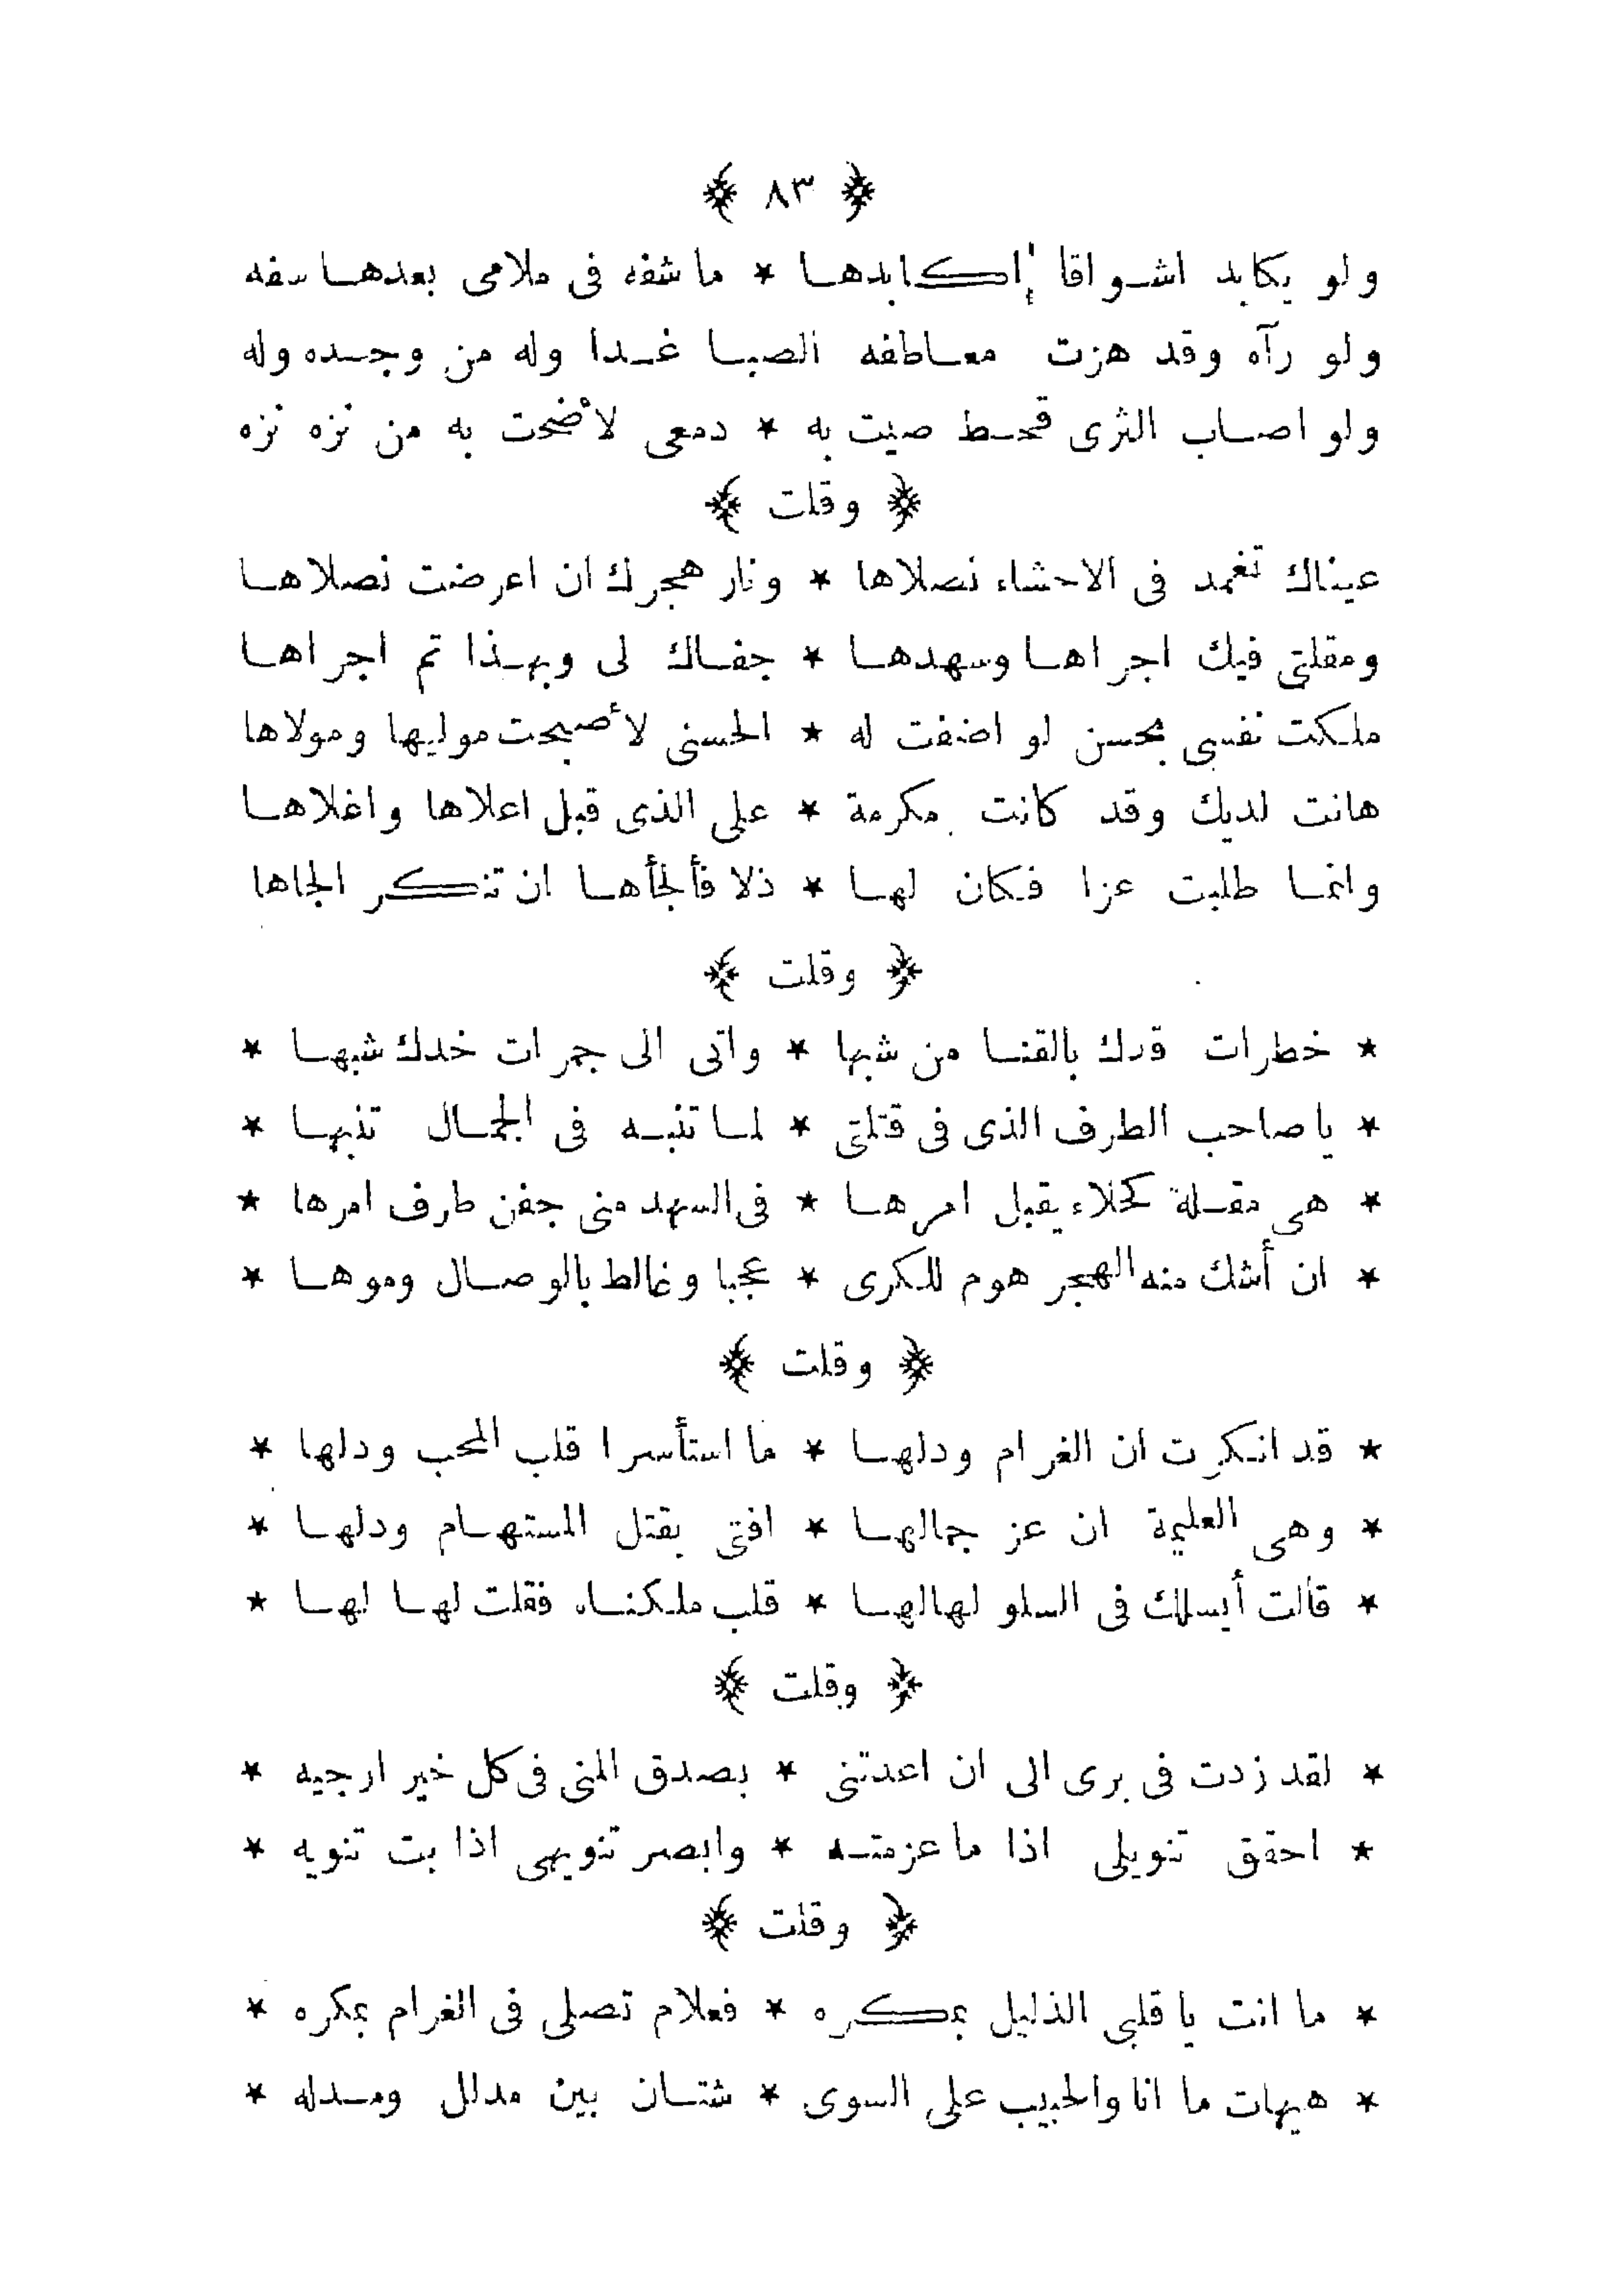 ﴿ ٨٣ ﴾
ولو يكابد اشواقا اكابدها * ما شفه فى ملامى بعدها سفه
ولو رآه وقد هزت معاطفه الصبا غدا وله من وجده وله
ولو اصاب الثرى قحط صيت به * دمعى لأضحت به من نزه نزه
﴿ وقلت ﴾
عيناك تغمد فى الاحشاء نصلاها * ونار هجرك ان اعرضت نصلاها
ومقلتى فيك اجراها وسهدها * جفاك لى وبهذا تم اجراها
ملكت نفسى بحسن لو اضفت له * الحسنى لأصبحت موليها ومولاها
هانت لديك وقد كانت مكرمة * على الذى قبل اعلاها واغلاها
وانما طلبت عزا فكان لها * ذلا فألجأها ان تذكر الجاها
﴿ وقلت ﴾
* خطرات قدك بالقنا من شبها * واتى الى جمرات خدك شبها *
* يا صاحب الطرف الذى فى قتلتى * لما تنبه فى الجمال تنبها *
* هى مقلة كحلاء يقبل امرها * فى السهد منى جفن طرف امرها *
* ان أشك منه الهجر هوم للكرى * عجبا وغالط بالوصال وموها *
﴿ وقلت ﴾
* قد انكرت ان الغرام ودلها * ما استأسرا قلب المحب ودلها *
* وهى العليمة ان عز جمالها * افتى بقتل المستهام ودلها *
* قالت أيسلك فى السلو لها لها * قلب ملكناه فقلت لها لها *
﴿ وقلت ﴾
* لقد زدت فى برى الى ان اعدتنى * بصدق المنى فى كل خير ارجيه *
* احقق تنويلى اذا ما عزمته * وابصر تنويهى اذا بت تنويه *
﴿ وقلت ﴾
* ما انت يا قلبى الذليل بمكره * فعلام تصلى فى الغرام بمكره *
* هيهات ما انا والحبيب على السوى * شتان بين مدلل ومدله *